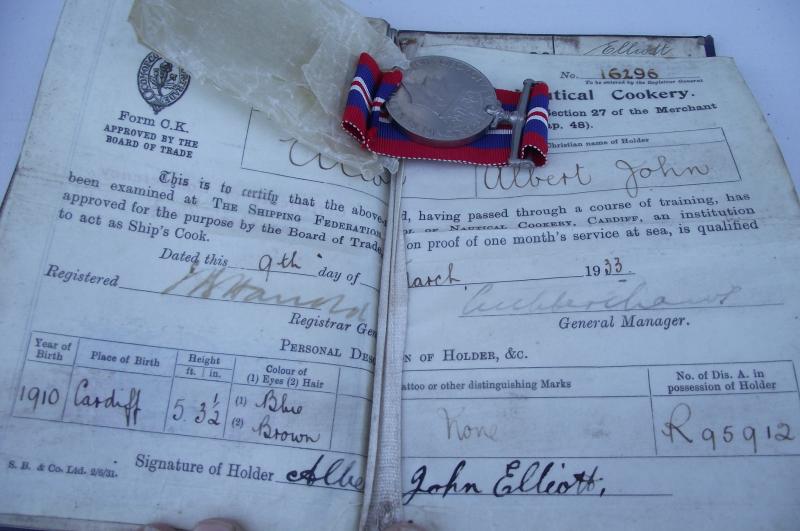 Elliott
No. 16296
To be entered by the Registrar General
Form C.K.
APPROVED BY THE
BOARD OF TRADE
utical Cookery.
Section 27 of the Merchant
p. 48).
Christian name of Holder
Ellio
Albert John
This is to certify that the above-
d, having passed through a course of training, has
been examined at THE SHIPPING FEDERATION
OL OF NAUTICAL COOKERY, CARDIFF, an institution
approved for the purpose by the Board of Trade
on proof of one month's service at sea, is qualified
to act as Ship's Cook.
Dated this 9th day of
arch, 1933
Registered
Registrar Gen
General Manager.
PERSONAL DES
ON OF HOLDER, &C.
Year of Birth
Place of Birth
Height
ft. in.
Colour of
(1) Eyes (2) Hair
attoo or other distinguishing Marks
No. of Dis. A. in
possession of Holder
1910
Cardiff
5. 3½
(1) Blue
(2) Brown
None
R95912
S. B. & Co. Ltd. 2/6/31.
Signature of Holder Albe
John Elliott.